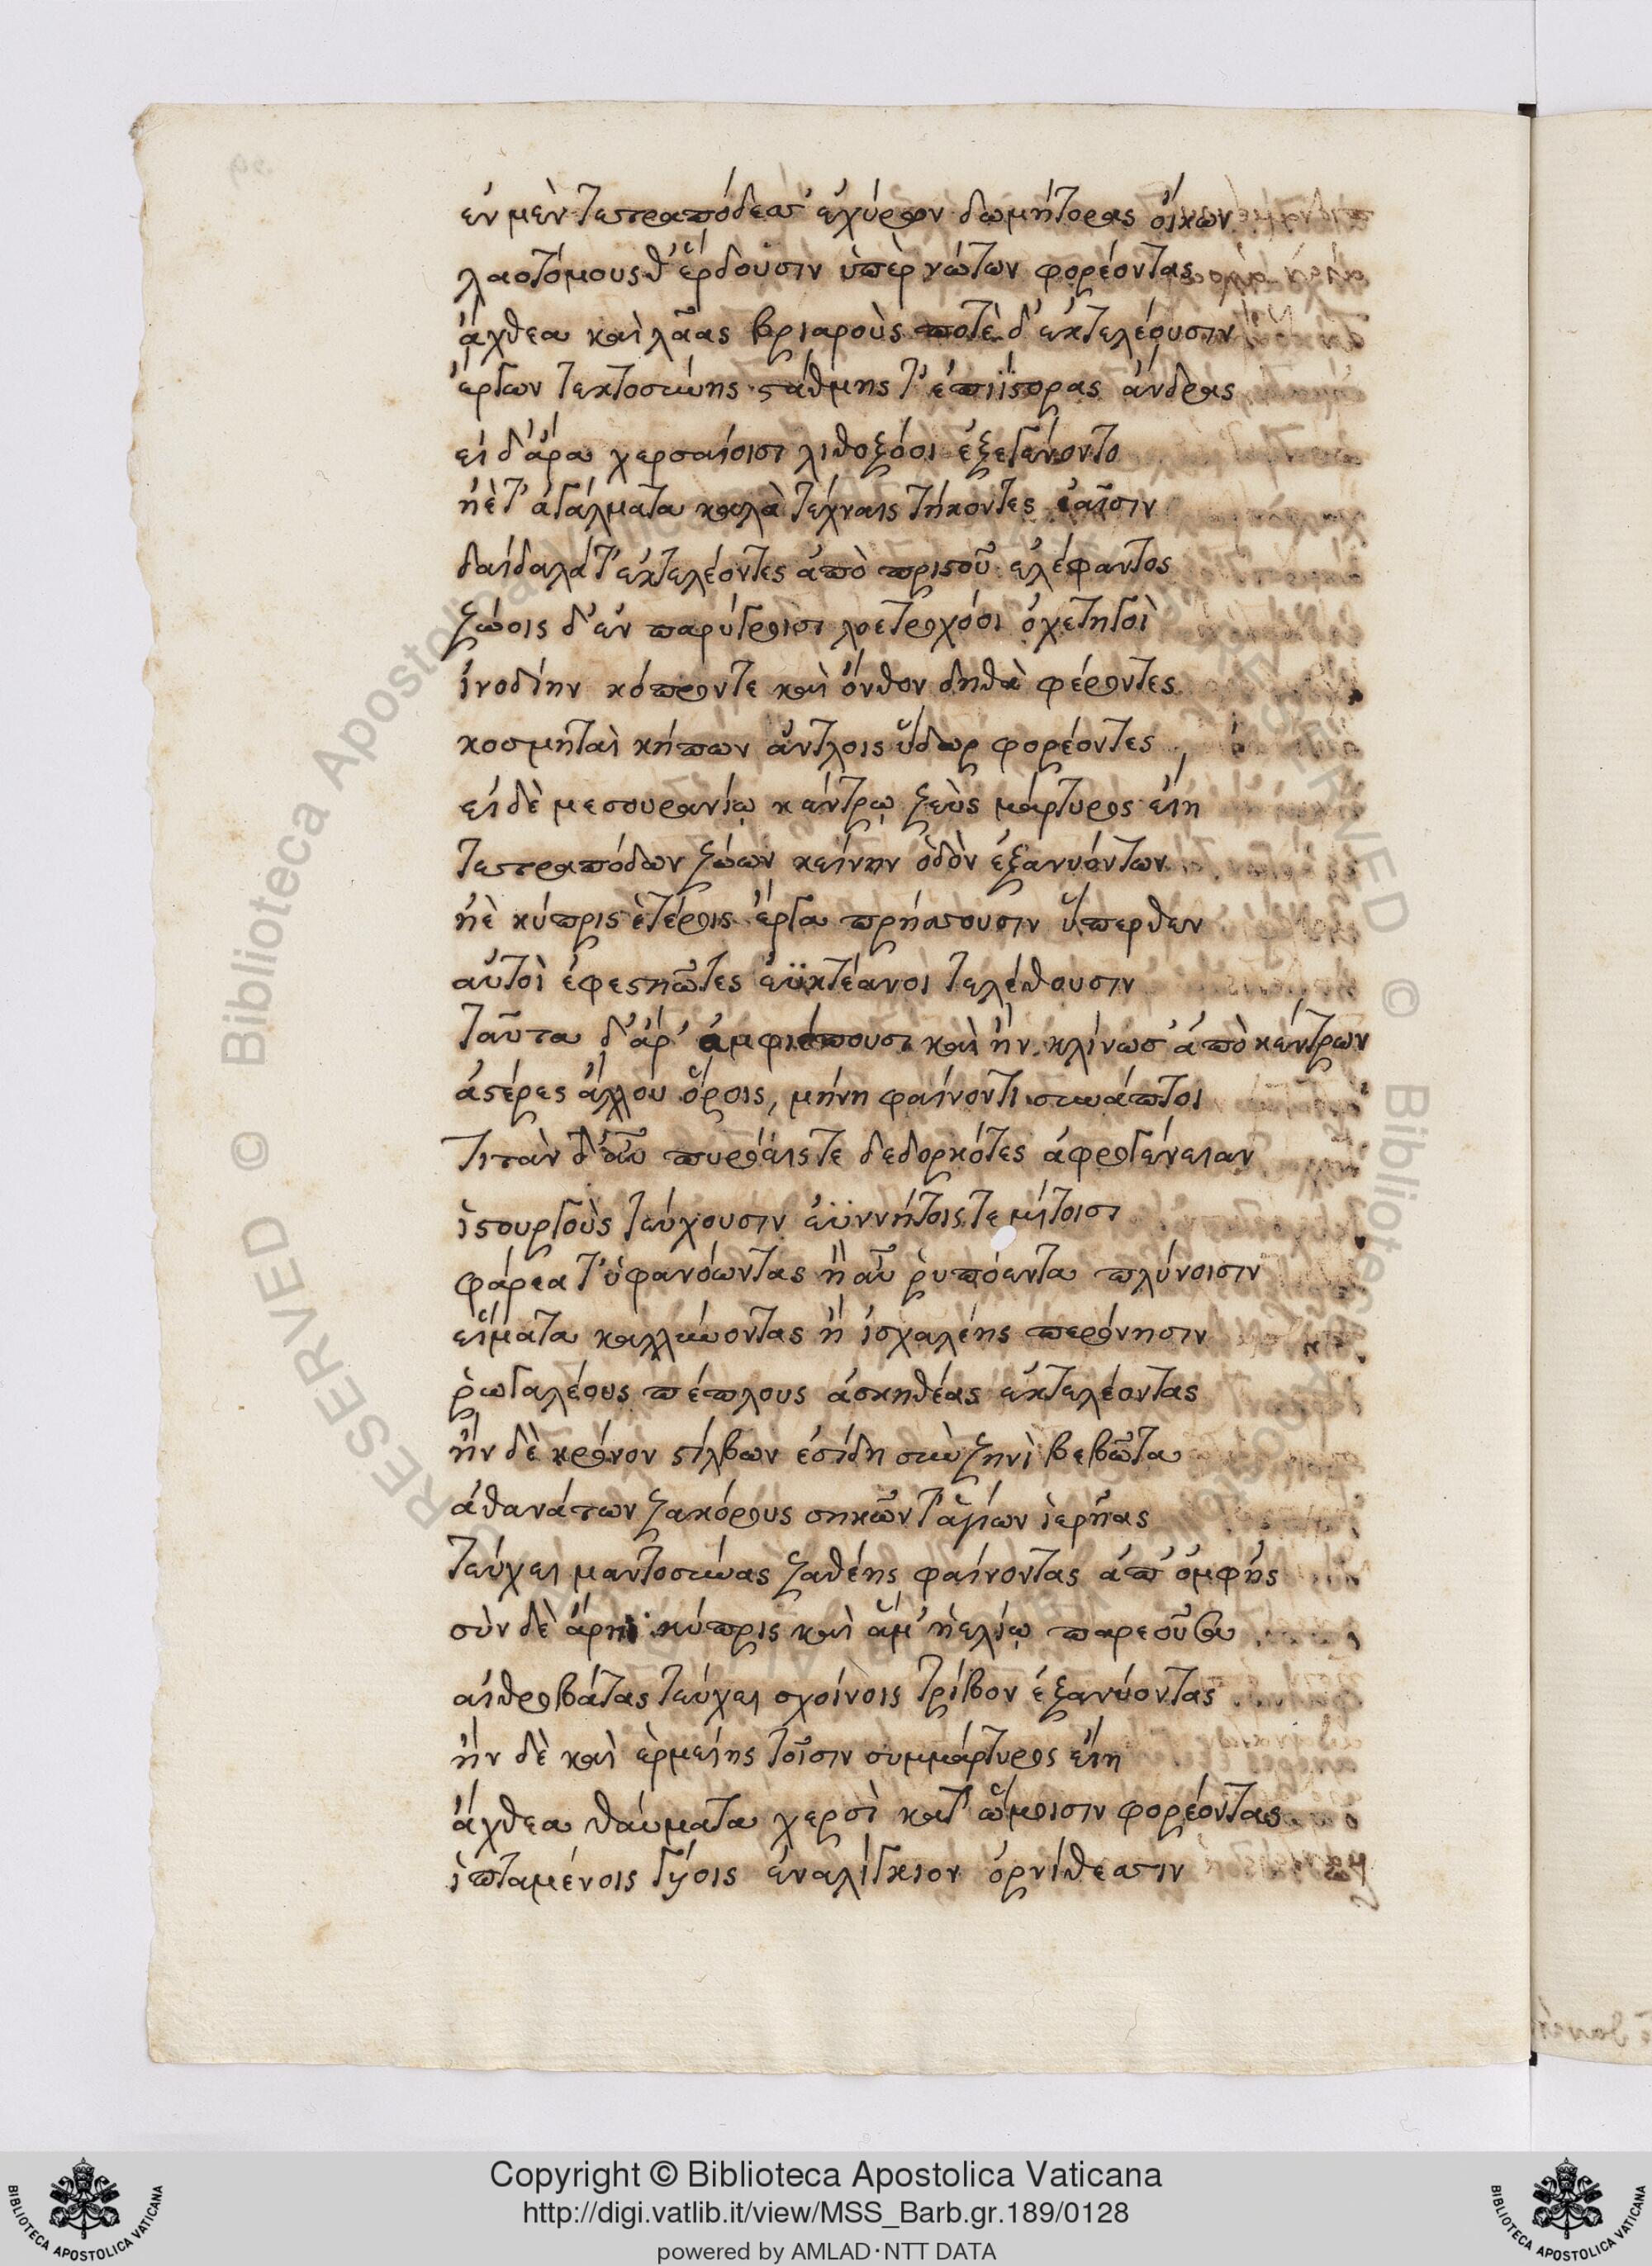 ἐν μὲν τετραπόδεσσ' ἐχύρων δωμήτορας οἴκων
λαοτόμους θ' ἔρδουσιν ὑπὲρ νώτων φορέοντας
ἄχθεα καὶ λᾶας βριαροὺς ποτὲ δ' ἐκτελέουσιν
ἔργων τεκτοσύνης στάθμης τ' ἐπιΐστορας ἄνδρας
εἰ δ' ἄρα χερσαίοισι λιθοξόοι ἐξεγένοντο
ἠὲ τ' ἀγάλματα καλὰ τέχναις τήκοντες ἐᾶσιν
δαίδαλά τ' ἐκτελέοντες ἀπὸ πριστοῦ ἐλέφαντος
ζώοις δ' ἐν παρύγροισι λοετροχόοι ὀχετηγοὶ
ἰνοδίην κόπρον τε καὶ ὄνθον δηθὰ φέροντες
κοσμηταὶ κήπων ἄντλοις ὕδωρ φορέοντες,
εἰ δὲ μεσουρανίῳ κέντρῳ ζεὺς μάρτυρος εἴη
τετραπόδων ζώων κείνην ὁδὸν ἐξανυόντων
ἠὲ κύπρις ἑτέροις ἔργα πρήσσουσιν ὕπερθεν
αὐτοὶ ἐφεστηῶτες ἐϋκτέανοι τελέθουσιν
ταῦτα δ' ἄρ' ἀμφιέπουσι καὶ ἢν κλίνωσ' ἀπὸ κέντρων
ἀστέρες ἄλλου ὅροις, μήνη φαίνοντι συνάπτοι
τιτὰν δ' αὖ πυρόεις τε δεδορκότες ἀφρογένειαν
ἱστουργοὺς τεύχουσιν ἐϋννήτοις τε μίτοισι
φάρεα τ' ὑφανόωντας ἢ αὖ ῥυπόεντα πλύνοισιν
εἵματα καλλύνοντας ἢ ἰσχαλέης περόνησιν
ῥωγαλέους πέπλους ἀσκηθέας ἐκτελέοντας
ἢν δὲ κρόνον στίλβων ἐσίδη σὺν ζηνὶ βεβῶτα
ἀθανάτων ζακόρους σηκῶν τ' ἁγίων ἱερῆας
τεύχει μαντοσύνας ζαθέης φαίνοντας ἀπ' ὀμφῆς
σὺν δὲ ἄρηϊ κύπρις καὶ ἅμ' ἠελίῳ παρεοῦσα
αἰθροβάτας τεύχει σχοίνοις τρίβον ἐξανύοντας
ἢν δὲ καὶ ἑρμείης τοῖσιν συμμάρτυρος εἴη
ἄχθεα θαύματα χερσὶ κατ' ὤμοισιν φορέοντας
ἱπταμένοις γύοις ἐναλίγκιον ὀρνίθεσσιν
Copyright © Biblioteca Apostolica Vaticana
http://digi.vatlib.it/view/MSS_Barb.gr.189/0128
powered by AMLAD·NTT DATA